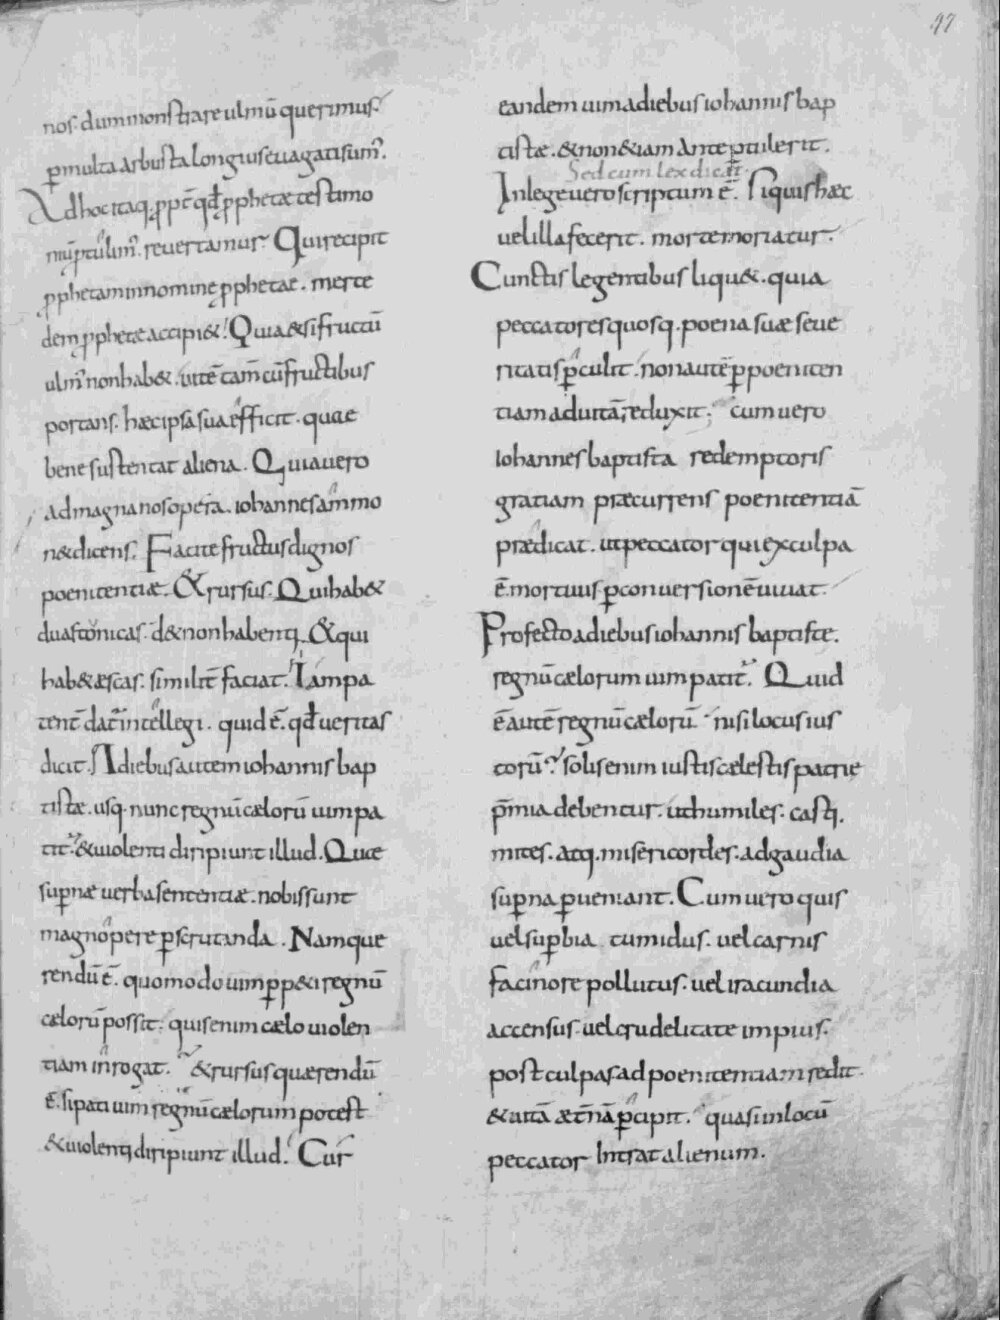 97
nos. dum monstrare ulmū querimus.
ꝑ multa arbusta longius euagati sumꝰ.
Ad hoc itaq; ꝓpt̄ qđ ꝓphetæ testimo
niū ꝑtulimꝰ. reuertamur. Qui recipit
ꝓphetam in nomine ꝓphetae. merce
dem ꝓphetæ accipi&. Quia & si fructū
ulmꝰ non hab&. uitē tam̄ cū fructibus
portans. hæc ipsa sua efficit. quae
bene sustentat aliena. Quia uero
ad magna nos opera. iohannes ammo
n& dicens. Facite fructus dignos
poenitentiæ. & rursus. Qui hab&
duas tonicas. d& non habenti. & qui
hab& æscas. similit̄ faciat. Iam pa
tent̄ dat̄ intellegi. quid ē. qđ ueritas
dicit. A diebus autem iohannis bap
tistæ. usq; nunc regnū cælorū uim pa
tit̄. & uiolenti diripiunt illud. Quae
suꝑnæ uerba sententiæ. nobis sunt
magnopere ꝑscrutanda. Nam que
rendū ē. quomodo uim ꝑp&i regnū
cælorū possit. quis enim cælo uiolen
tiam inrogat. & rursus quærendū
ē. si pati uim regnū cælorum potest
& uiolenti diripiunt illud. Cur
eandem uim a diebus iohannis bap
tistæ. & non &iam ante ꝑtulerit.
Sed cum lex dicat
In lege uero scriptum ē. Si quis hæc
uel illa fecerit. morte moriatur.
Cunctis legentibus liqu&. quia
peccatores quosq; poena suæ seue
ritatis ꝑculit. non autē ꝑ poeniten
tiam ad uitā reduxit. cum uero
iohannes baptista redemptoris
gratiam præcurrens poenitentiā
prædicat. ut peccator qui ex culpa
ē mortuus ꝑ conuersionē uiuat.
Profecto a diebus iohannis baptiste.
regnū cælorum uim patit̄. Quid
ē autē regnū cælorū nisi locus ius
torū? solis enim iustis cælestis patrie
p̄mia debentur. ut humiles. casti.
mites. atq; misericordes. ad gaudia
suꝑna ꝑueniant. Cum uero quis
uel suꝑbia tumidus. uel carnis
facinore pollutus. uel iracundia
accensus. uel crudelitate impius.
post culpas ad poenitentiam redit.
& uitā æt̄nā ꝑcipit. quasi in locū
peccator intrat alienum.